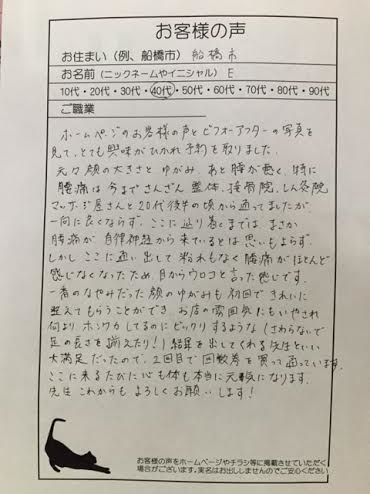 お客様の声
お住まい（例、船橋市） 船橋市
お名前（ニックネームやイニシャル） E
10代・20代・30代・40代・50代・60代・70代・80代・90代
ご職業
ホームページのお客様の声とビフォーアフターの写真を
見て、とても興味がひかれ予約を取りました。
元々顔の大きさとゆがみ、あと腰が悪く、特に
腰痛は今までさんざん整体、接骨院、しん灸院
マッサージ屋さんと20代後半の頃から通ってましたが、
一向に良くならず。ここに辿り着くまでは まさか
腰痛が自律神経から来ているとは思いもよらず。
しかしここに通い出して紛れもなく腰痛がほとんど
感じなくなったため、目からウロコと言った感じです。
一番のなやみだった顔のゆがみも初回できれいに
整えてもらうことができ、お店の雰囲気にもいやされ
何より、ホンワカしてるのにビックリするような（さわらないで
足の長さを揃えたり！）結果を出してくれる先生といい
大満足だったので、2回目で回数券を買って通っています。
ここに来るたびに心も体も本当に元気になります。
先生これからもよろしくお願いします！
お客様の声をホームページやチラシ等に掲載させていただく
場合がございます。実名はお出ししませんのでご安心ください